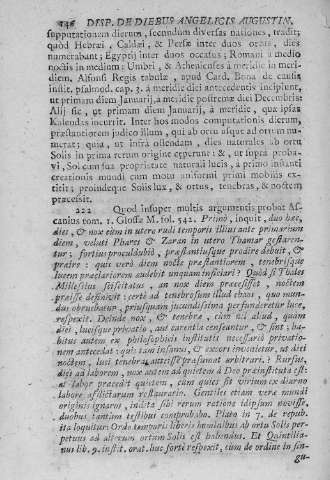 146 DISP. DE DIEBUS ANGELICIS AUGUSTIN.
supputationem dierum, secundum diversas nationes, tradit;
quòd Hebræi, Caldæi, & Persæ inter duos ortus, dies
numerabant; Egyptij inter duos occasus; Romani à medio
noctis in medium: Umbri, & Athenienses à meridie in meri-
diem, Alfonsi Regis tabulæ, apud Card. Bona de causis
instit. psalmod. cap. 3. à meridie diei antecedentis incipiunt,
ut primam diem Januarij, à meridie postremæ diei Decembris:
Alij sic, ut primam diem Januarij, à meridie, qua ipsæ
Kalendæ incurrit. Inter hos modos computationis dierum,
præstantiorem judico illum, qui ab ortu usque ad ortum nu-
merat; quia, ut infrà ostendam, dies naturales ab ortu
Solis in prima rerum origine cęperunt: &, ut supra proba-
vi, Sol cum sua proprietate naturali lucis, à primo instanti
creationis mundi cum motu uniformi primi mobilis ex-
titit; proindeque Solis lux, & ortus, tenebras, & noctem
præcessit.
222 Quod insuper multis argumentis probat As-
canius tom. 1. Glossæ M. fol. 542. Primò, inquit, duo hæc,
dies, & nox cùm in utero rudi temporis illius ante primarium
diem, veluti Phares & Zaran in utero Thamar gestaren-
tur; fortius proculdubiò, præstantiusque prodire debuit, &
præire: quis verò diem nocte præstantiorem, tenebrisque
lucem præclariorem audebit unquam inficiari? Quòd si Thales
Millesius sciscitatus, an nox diem præcessisset, noctem
præisse definivit: certè ad tenebrosum illud chaos, quo mun-
dus obruebatur, priusquam jucundissima perfunderetur luce,
respexit. Deinde nox, & tenebræ, cùm nil aliud, quàm
diei, lucisque privatio, aut carentia censeantur, & sint; ha-
bitus autem ex philosophicis institutis necessariò privatio-
nem antecedat: quis tam insanus, & excors invenitur, ut diei
noctem, luci tenebras antecessisse præsumat arbitrari? Rursus,
diei ad laborem, nox autem ad quietem à Deo præinstituta est:
at labor præcedit quietem, cum quies sit virium ex diurno
labore afflictarum restauratio. Gentiles etiam veræ mundi
originis ignaros, indita sibi rerum ratione idipsum novisse,
duobus tantùm testibus comprobabo. Plato in 7. de repub.
ita loquitur: Ordo temporis liberis hominibus ab ortu Solis per-
petuus ad alterum ortum Solis est habendus. Et Quintilia-
nus lib. 9. instit. orat. huc fortè respexit, cùm de ordine in sin-
gu-